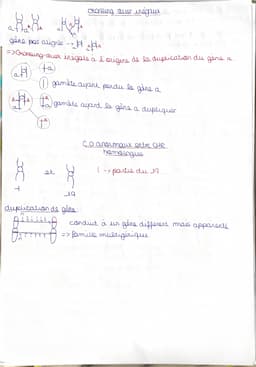 crossing over inégaux
a a a a
gène pas aligné →
=> Crossing-over inégale a l'origine de la duplication du gène a
a
gamète ayant perdu le gène a
gamète ayant le gène a dupliquer
C.O anormaux entre CHR
homologue
et 1 → partie du 19
19
duplication de gène
conduit à un gène différent mais apparenté
=> famille multigénique